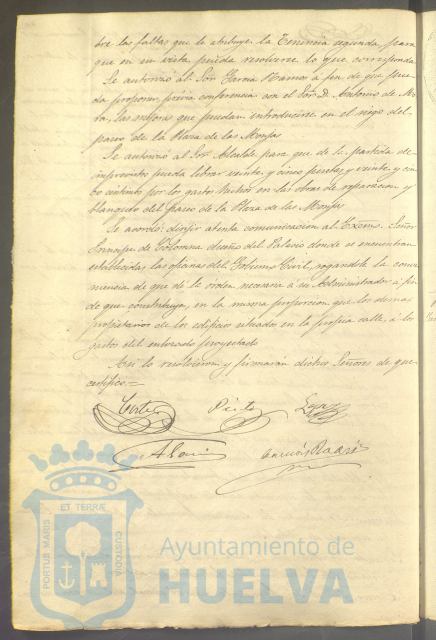 bre las faltas que le atribuye la Tenencia segunda, para
que en su vista pueda resolverse lo que corresponda
Se autorizó al Sor. Garcia Ramos a fin de que pue
da proponer, prévia conferencia con el Sor. D. Antonio de Mo
ra, las mejoras que puedan introducirse en el riego del
paseo de la Plaza de las Monjas
Se autorizó al Sor. Alcalde para que de la partida de
imprevistos pueda librar veinte y cinco pesetas y veinte y cin
co centimos por los gastos hechos en las obras de reparacion y
blanqueo del paseo de la Plaza de las Monjas
Se acordó: dirijir atenta comunicacion al Excmo. Señor
Principe de Colonna dueño del Palacio donde se encuentran
establecidas las oficinas del Gobierno Civil, rogandole la conve
niencia de que dé la orden necesaria á su Administrador á fin
de que contribuya, en la misma proporcion que los demas
propietarios de los edificios situados en la propia calle, á los
gastos del entorado proyectado
Asi lo resolvieron y firmarán dichos Señores de que
certifico.=
Garcia Ramos
ET TERRÆ
PORTUS MARIS
CUSTODIA
Ayuntamiento de
HUELVA